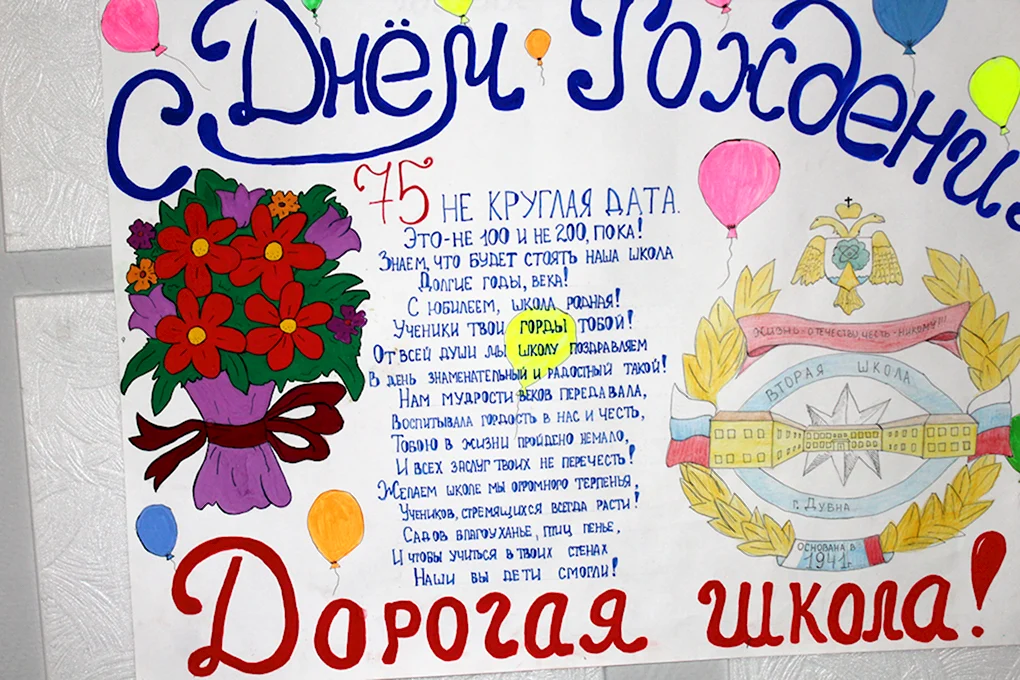 С Днём Рождения
75 НЕ КРУГЛАЯ ДАТА.
ЭТО-НЕ 100 И НЕ 200, ПОКА!
ЗНАЕМ, ЧТО БУДЕТ СТОЯТЬ НАША ШКОЛА
ДОЛГИЕ ГОДЫ, ВЕКА!
С ЮБИЛЕЕМ, ШКОЛА РОДНАЯ!
УЧЕНИКИ ТВОИ ГОРДЫ ТОБОЙ!
ОТ ВСЕЙ ДУШИ МЫ ШКОЛУ ПОЗДРАВЛЯЕМ
В ДЕНЬ ЗНАМЕНАТЕЛЬНЫЙ И РАДОСТНЫЙ ТАКОЙ!
НАМ МУДРОСТИ ВЕКОВ ПЕРЕДАВАЛА,
ВОСПИТЫВАЛА ГОРДОСТЬ В НАС И ЧЕСТЬ,
ТОБОЮ В ЖИЗНИ ПРОЙДЕНО НЕМАЛО,
И ВСЕХ ЗАСЛУГ ТВОИХ НЕ ПЕРЕЧЕСТЬ!
ЖЕЛАЕМ ШКОЛЕ МЫ ОГРОМНОГО ТЕРПЕНЬЯ,
УЧЕНИКОВ, СТРЕМЯЩИХСЯ ВСЕГДА РАСТИ!
САДОВ БЛАГОУХАНЬЕ, ПТИЦ ПЕНЬЕ,
И ЧТОБЫ УЧИТЬСЯ В ТВОИХ СТЕНАХ
НАШИ ВЫ ДЕТИ СМОГЛИ!
ЖИЗНЬ-ОТЕЧЕСТВУ, ЧЕСТЬ-НИКОМУ!!!
ВТОРАЯ ШКОЛА
г. ДУБНА
ОСНОВАНА В
1941г.
Дорогая школа!